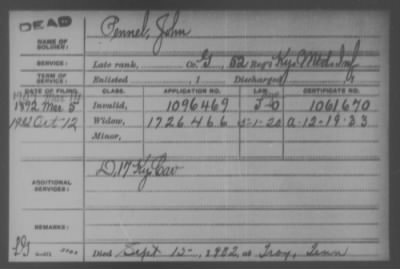 DEAD
NAME OF SOLDIER: Pennel, John
SERVICE: Late rank, Co. G, 52 Reg't Ky. Mtd. Inf
TERM OF SERVICE: Enlisted , 1 Discharged , 1
DATE OF FILING. CLASS. APPLICATION NO. LAW. CERTIFICATE NO.
1892 Mar 5 Invalid, 1096469 1061670
Oct 12 Widow, 1726466 5-1-20 a-12-19-33
Minor,
ADDITIONAL SERVICES: D, 17 Ky. Cav
REMARKS:
Died Sept 15-, at Troy, Tenn